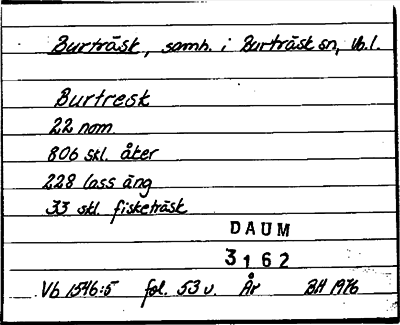 Burträsk, samh. i Burträsk sn, Vb. l.
Burtresk
22 nom
806 skl. åker
228 lass äng
33 skl. fisketräsk
DAUM
3162
Vb 1546:5 fol. 53 v. År BH 1976